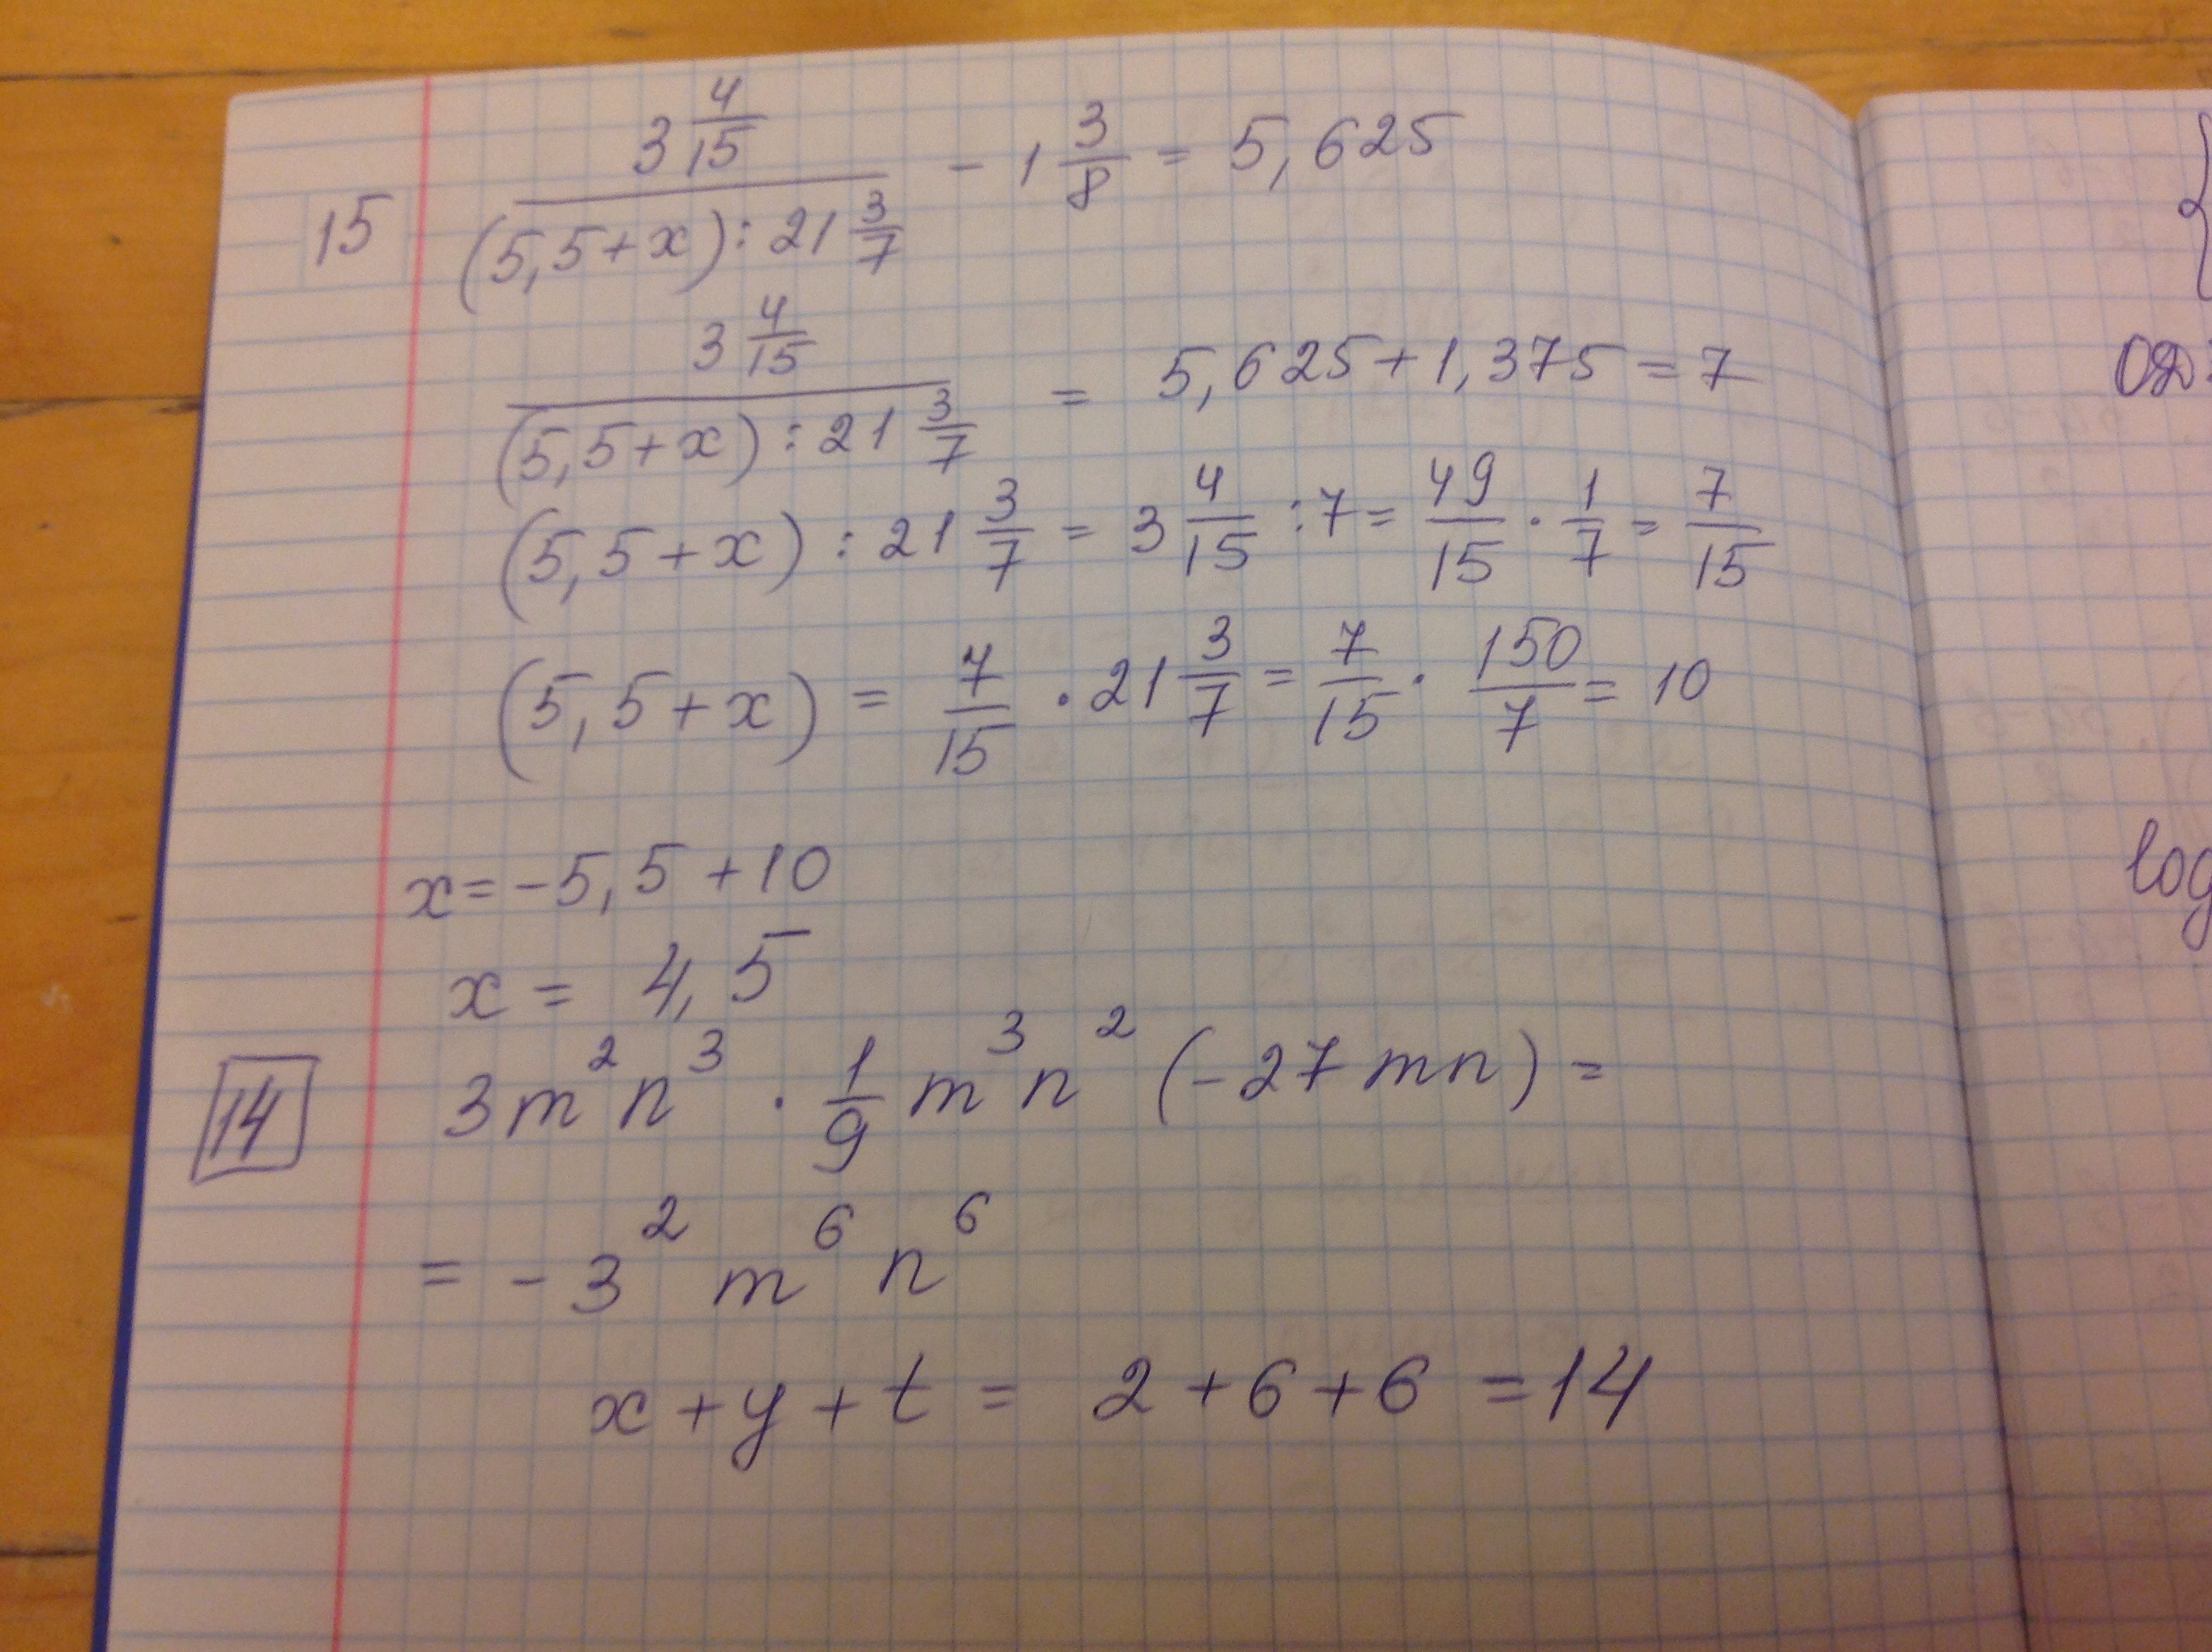 15 \frac{3\frac{4}{15}}{(5,5+x):21\frac{3}{7}} - 1\frac{3}{8} = 5,625
\frac{3\frac{4}{15}}{(5,5+x):21\frac{3}{7}} = 5,625+1,375=7
(5,5+x):21\frac{3}{7} = 3\frac{4}{15}:7 = \frac{49}{15}·\frac{1}{7} = \frac{7}{15}
(5,5+x) = \frac{7}{15}·21\frac{3}{7} = \frac{7}{15}·\frac{150}{7} = 10
x=-5,5+10
x = 4,5
14 3m²n³ · \frac{1}{9}m³n²(-27mn) =
= -3² m⁶ n⁶
x+y+t = 2+6+6 = 14
{
log